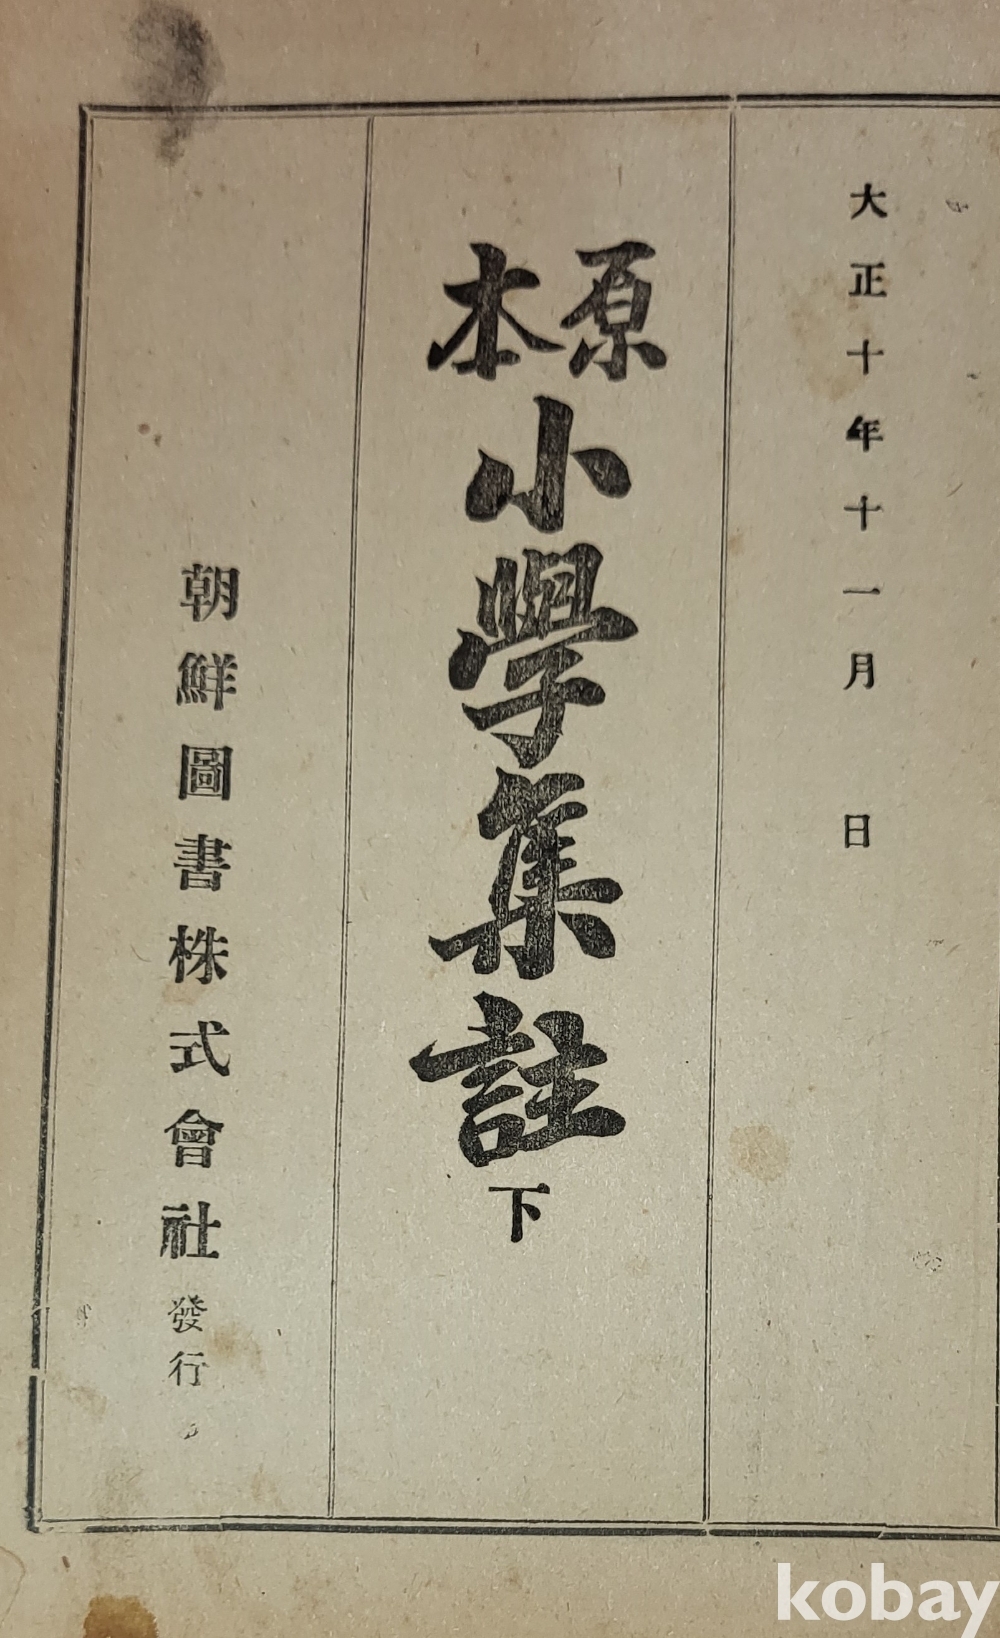 大正十年十一月　日
原本小學集註下
朝鮮圖書株式會社發行
kobay